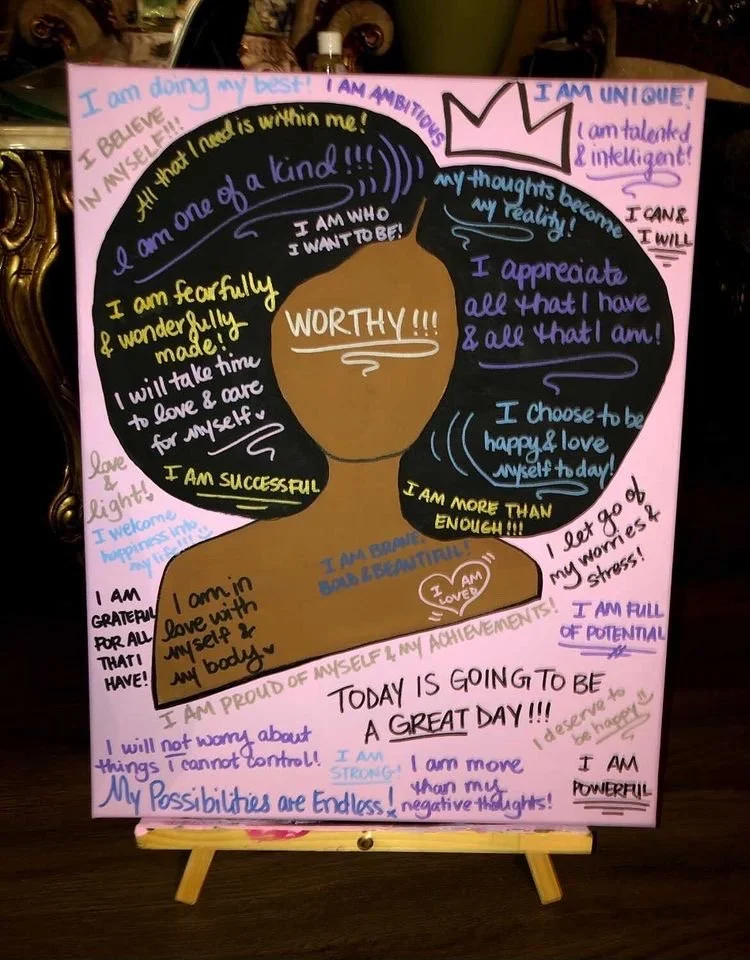 I am doing my best!
I AM AMBITIOUS
I AM UNIQUE!
I BELIEVE
IN MYSELF!!!
I am talented
& intelligent!
All that I need is within me!
I am one of a kind!!!
my thoughts become
my reality!
I CAN &
I WILL
I AM WHO
I WANT TO BE!
I am fearfully
& wonderfully
made!
WORTHY!!!
I appreciate
all that I have
& all that I am!
I will take time
to love & care
for myself
I choose to be
happy & love
myself today!
I AM SUCCESSFUL
I AM MORE THAN
ENOUGH!!!
love
&
light!
I welcome
happiness into
my life!!!
I let go of
my worries &
stress!
I AM BRAVE,
BOLD & BEAUTIFUL!
I AM
LOVED
I AM
GRATEFUL
FOR ALL
THAT I
HAVE!
I am in
love with
myself &
my body
I AM FULL
OF POTENTIAL
I AM PROUD OF MYSELF & MY ACHIEVEMENTS!
TODAY IS GOING TO BE
A GREAT DAY!!!
I deserve to
be happy!!
I will not worry about
things I cannot control!
I AM
STRONG!
I am more
than my
negative thoughts!
I AM
POWERFUL
My Possibilities are Endless!